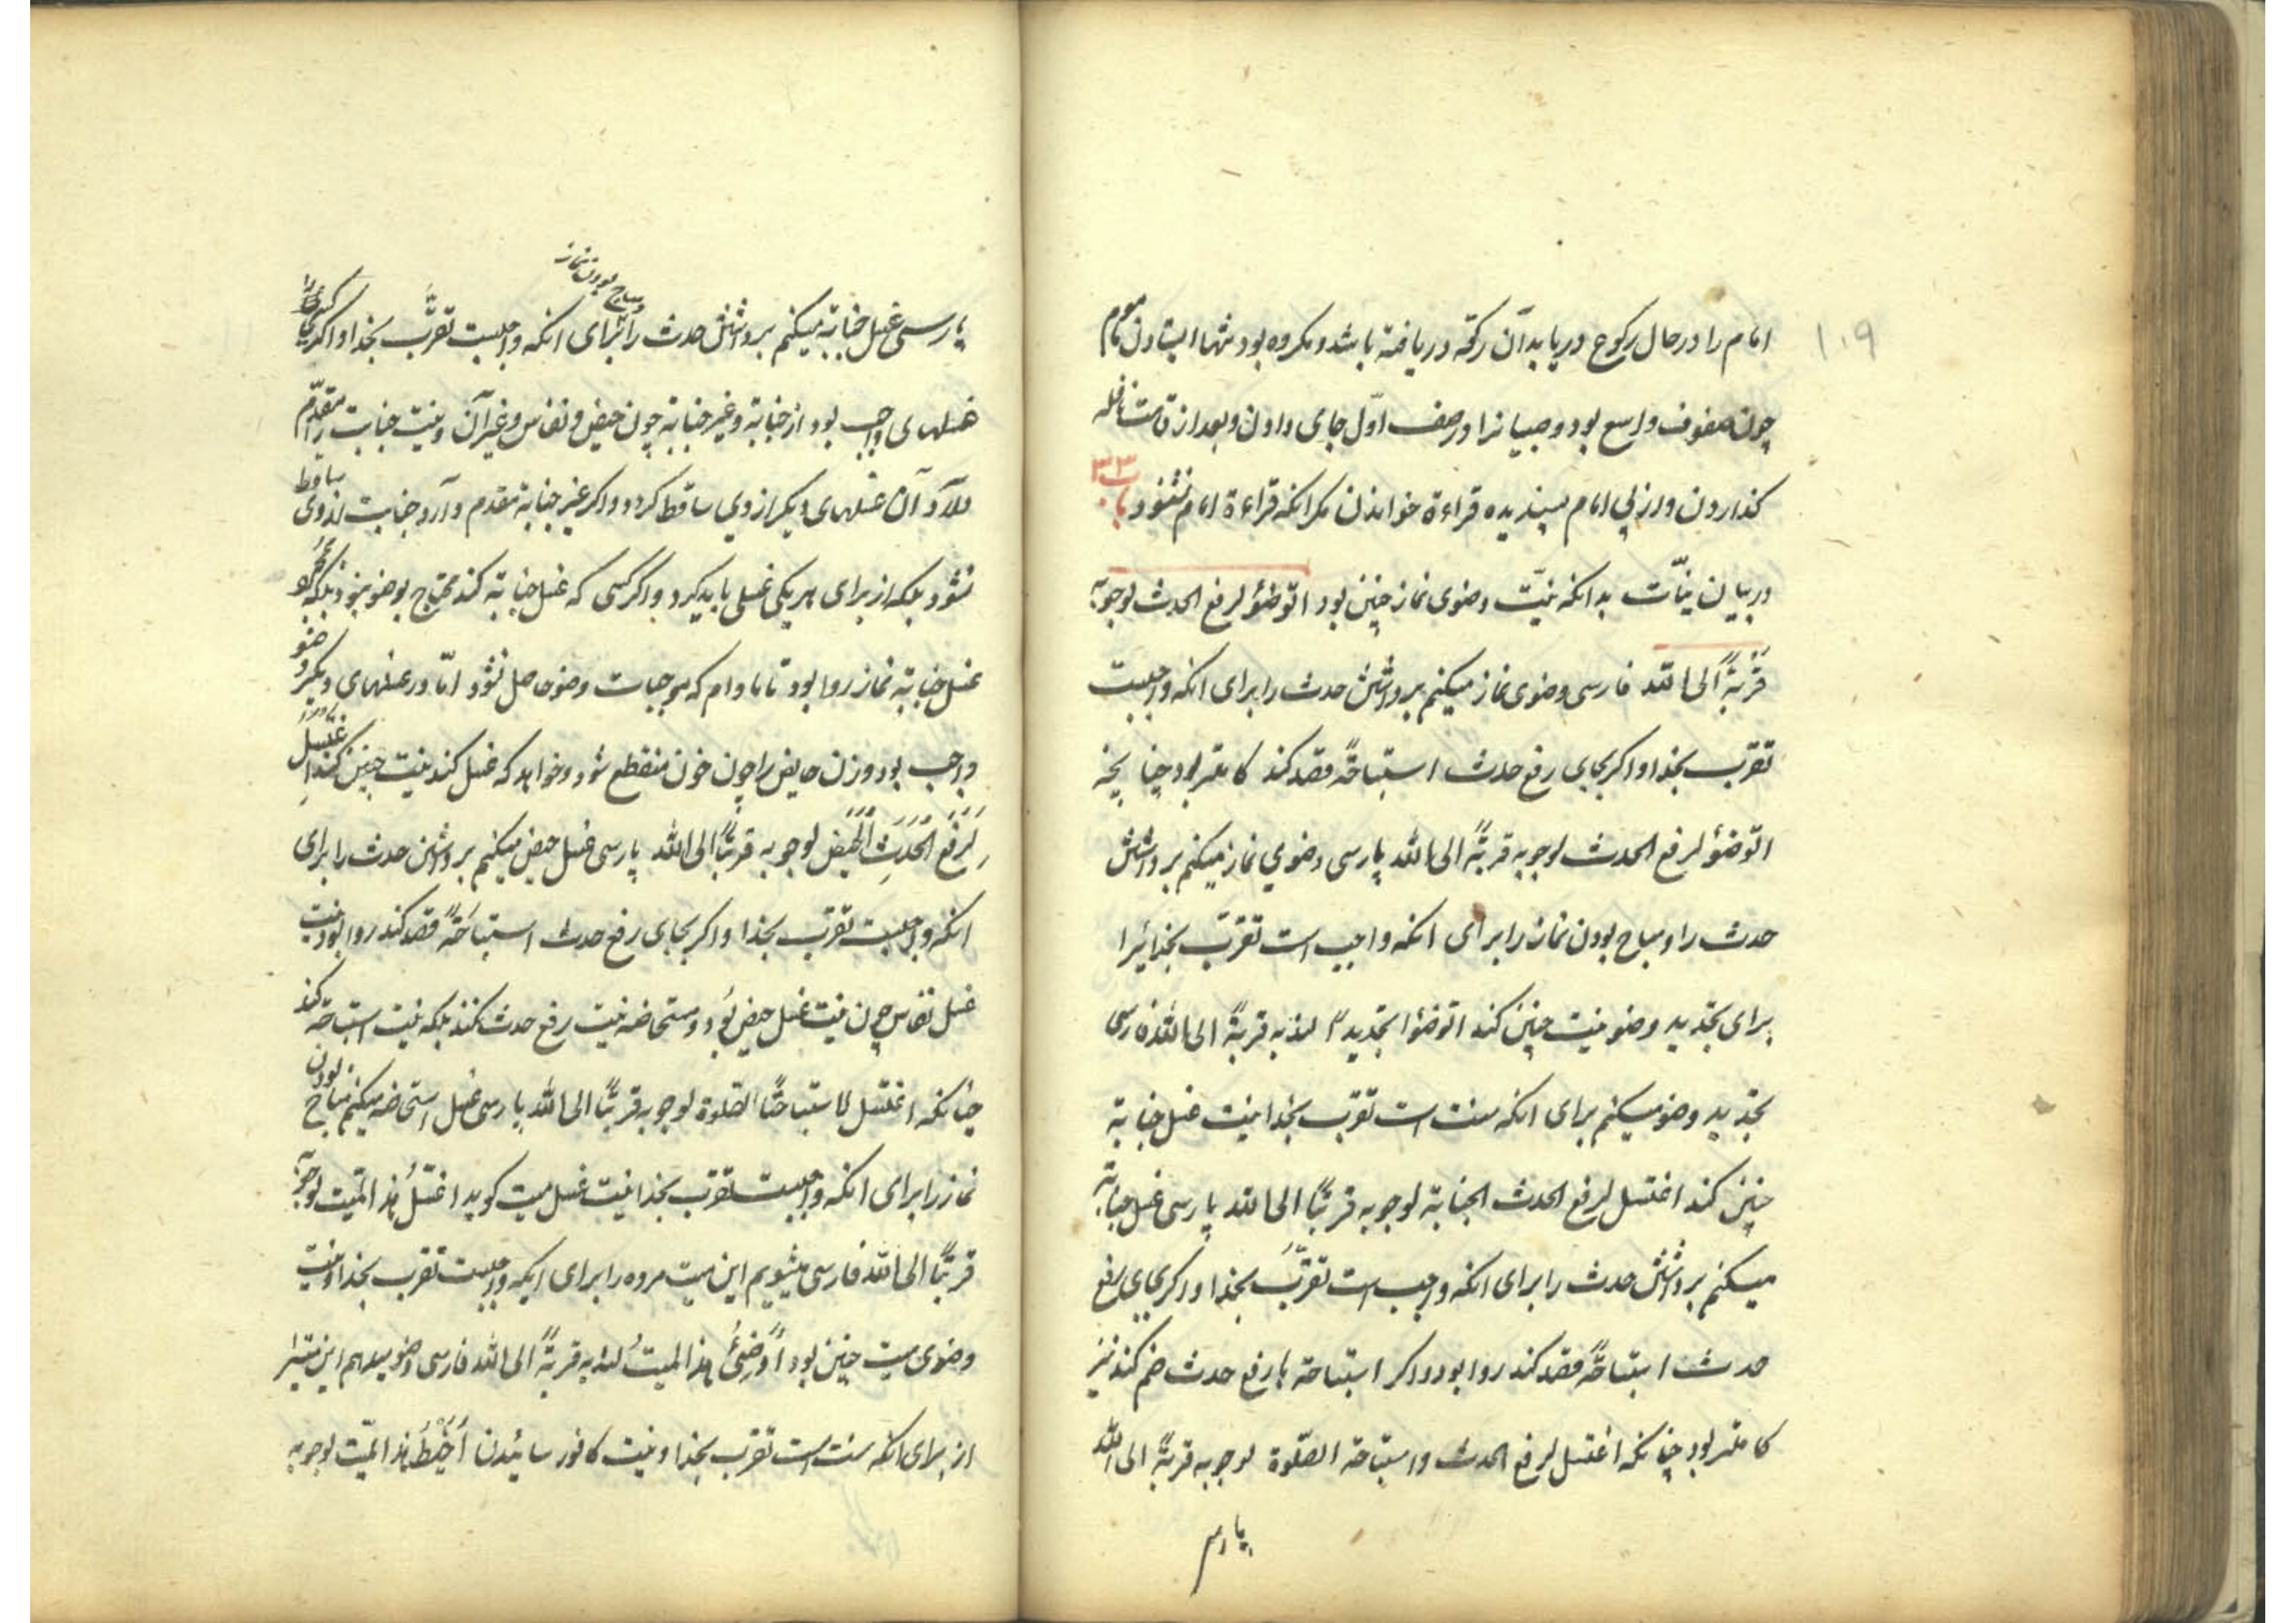 ۱۰۹
امام را در حال رکوع دریابد آن رکعه دریافته باشد و مکروه بود تنها ایستادن ماموم
چون صفوف واسع بود و صبیانرا در صف اوّل جای دادن و بعد از قامت نافله
کذاردن و از پی امام پسندیده قراءة خواندن مکر انکه قراءة امام نشنود باب ۳۳
در بیان نیّات بدانکه نیّت وضوی نماز چنین بود اتوضؤ لرفع الحدث لوجوبه
قربةً الی الله فارسی وضوی نماز میکنم برداشتن حدث را برای انکه واجبست
تقرّب بخدا و اکر بجای رفع حدث استباحةً قصد کند کاملتر بود چنانچه
اتوضؤ لرفع الحدث لوجوبه قربةً الی الله پارسی وضوي نماز میکنم برداشتن
حدث را و مباح بودن نماز را برای انکه واجب است تقرّب بخدایرا
برای تجدید وضو نیت چنین کند اتوضؤا تجدیدا لندبه قربةً الی الله فارسی
تجدید وضو میکنم برای انکه سنت است تقرّب بخدا نیت غسل جنابة
چنین کند اغتسل لرفع الحدث الجنابة لوجوبه قربتًا الی الله پارسی غسل جنابة
میکنم برداشتن حدث را برای انکه واجب است تقرّب بخدا و اکر بجای رفع
حدث استباحةً قصد کند روا بود و اکر استباحة با رفع حدث ضم کند نیز
کاملتر بود چنانکه اغتسل لرفع الحدث و استباحة الصّلوة لوجوبه قربةً الی الله
پارسی
پارسی غسل جنابة میکنم برداشتن حدث را برای انکه واجبست تقرّب بخدا و اکر کسی را
و مباح بودن نماز
غسلهای واجب بود از جنابة و غیر جنابة چون حیض و نفاس و غیر آن و نیت جنابت را مقدّم
دارد آن غسلهای دیکر از وي ساقط کردد و اکر غیر جنابة مقدم دارد جنابت از وی ساقط
نشود بلکه از برای هر یکی غسلی باید کرد و اکر کسی که غسل جنابة کند محتاج بوضو نبود بلکه
غسل جنابة نماز روا بود تا مادام که موجبات وضو حاصل نشود امّا در غسلهای دیکر وضو
واجب بود و زن حایض را چون خون منقطع شود و خواهد که غسل کند نیت چنین کند اغتسل
لرفع الحدث الحیض لوجوبه قربتًا الی الله پارسی غسل حیض میکنم برداشتن حدث را برای
انکه واجبست تقرب بخدا و اکر بجای رفع حدث استباحةً قصد کند روا بود نیت
غسل نفاس چون نیت غسل حیض بود و مستحاضه نیت رفع حدث نکند بلکه نیت استباحة کند
چنانکه اغتسل لاستباحتًا الصّلوة لوجوبه قربتًا الی الله پارسی غسل استحاضه میکنم مباح بودن
نماز را برای انکه واجبست تقرب بخدا نیت غسل میت کوید اغتسلُ هذا المّیت لوجوبه
قربتًا الی الله فارسی میشویم این میت مرده را برای اینکه واجبست تقرب بخدا و نیت
وضوی میت چنین بود اُوضئُ هذا المیتُ لندبه قربةً الی الله فارسی وضو میدهم این میترا
از برای انکه سنت است تقرب بخدا و نیت کافور سائیدن اُحَنِّطُ هذا المّیت لوجوبه